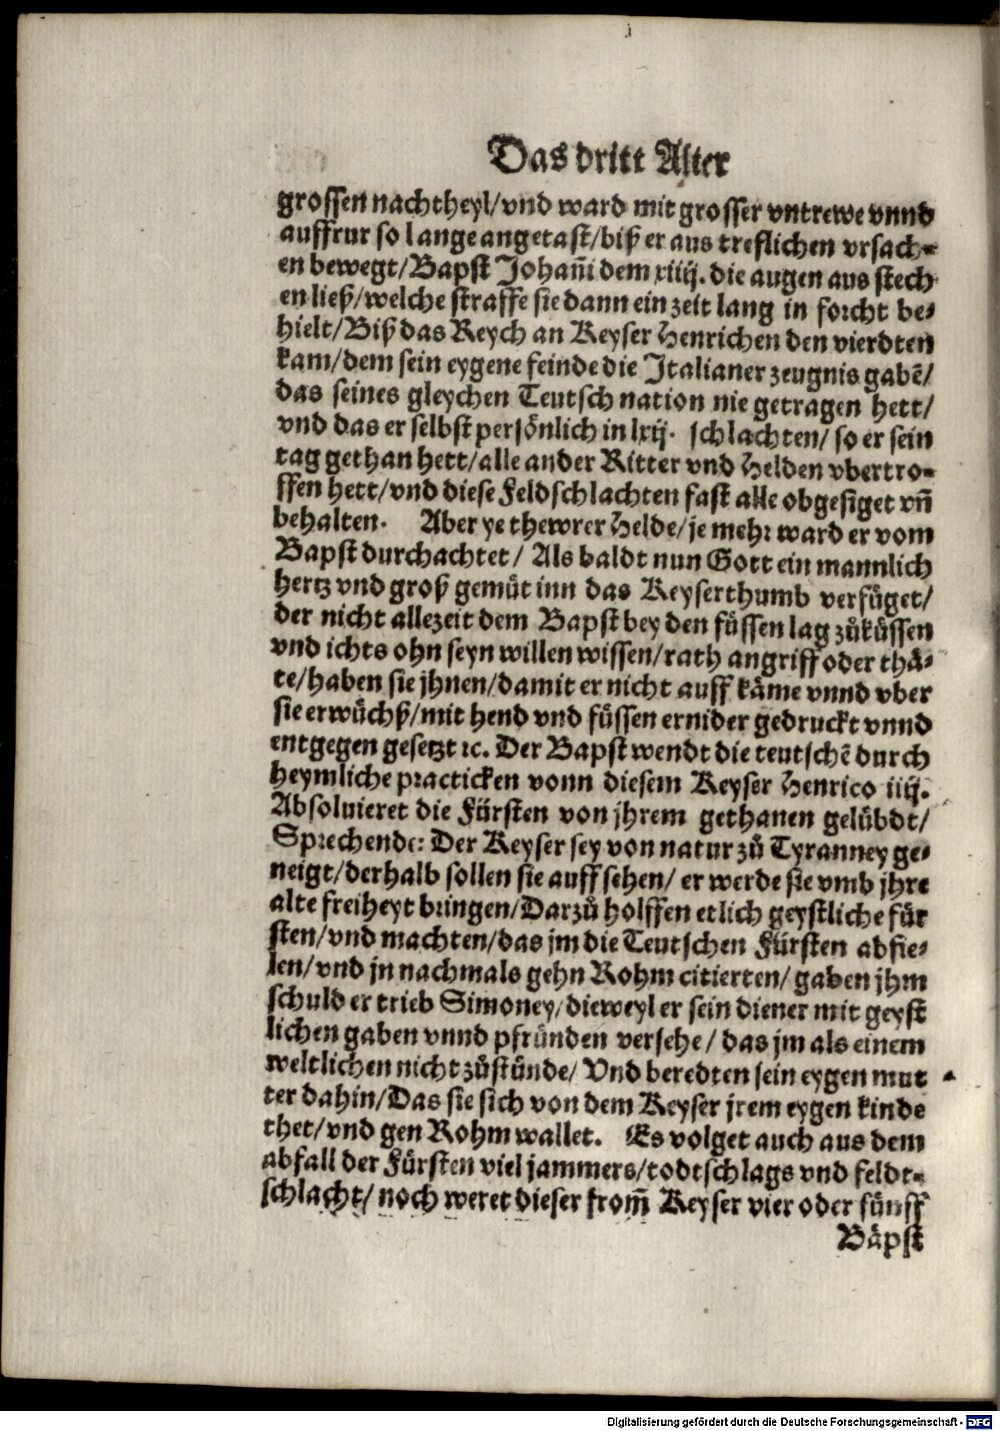 Das dritt Alter
grossen nachtheyl/vnd ward mit grosser vntrewe vnnd
auffrur so lange angetast/biß er aus treflichen vrsach⸗
en bewegt/Bapst Johañi dem xiiij. die augen aus stech
en ließ/welche straffe sie dann ein zeit lang in forcht be⸗
hielt/Biß das Reych an Keyser Henrichen den vierdten
kam/dem sein eygene feinde die Italianer zeugnis gabē/
das seines gleychen Teutsch nation nie getragen hett/
vnd das er selbst persönlich in lxij. schlachten/so er sein
tag gethan hett/alle ander Ritter vnd Helden vbertro⸗
ffen hett/vnd diese Feldschlachten fast alle obgesiget vñ
behalten. Aber ye thewrer Helde/je mehr ward er vom
Bapst durchachtet/ Als baldt nun Gott ein mannlich
hertz vnd groß gemüt inn das Keyserthumb verfüget/
der nicht allezeit dem Bapst bey den füssen lag zůküssen
vnd ichts ohn seyn willen wissen/rath angriff oder thä⸗
te/haben sie jhnen/damit er nicht auff käme vnnd vber
sie erwüchß/mit hend vnd füssen ernider gedruckt vnnd
entgegen gesetzt ꝛc. Der Bapst wendt die teutschē durch
heymliche practicken vonn diesem Keyser Henrico iiij.
Absoluieret die Fürsten von jhrem gethanen gelübdt/
Sprechende: Der Keyser sey von natur zů Tyranney ge⸗
neigt/derhalb sollen sie auff sehen/ er werde sie vmb jhre
alte freiheyt bringen/Darzů holffen etlich geystliche für
sten/vnd machten/das jm die Teutschen Fürsten abfie⸗
len/vnd jn nachmals gehn Rohm citierten/gaben jhm
schuld er trieb Simoney/dieweyl er sein diener mit geyst
lichen gaben vnnd pfründen versehe/das jm als einem
weltlichen nicht zůstünde/ Vnd beredten sein eygen mut
ter dahin/Das sie sich von dem Keyser jrem eygen kinde
thet/vnd gen Rohm wallet. Es volget auch aus dem
abfall der Fürsten viel jammers/todtschlags vnd feldt⸗
schlacht/ noch weret dieser from̃ Keyser vier oder fünff
Bäpst
Digitalisierung gefördert durch die Deutsche Forschungsgemeinschaft - DFG